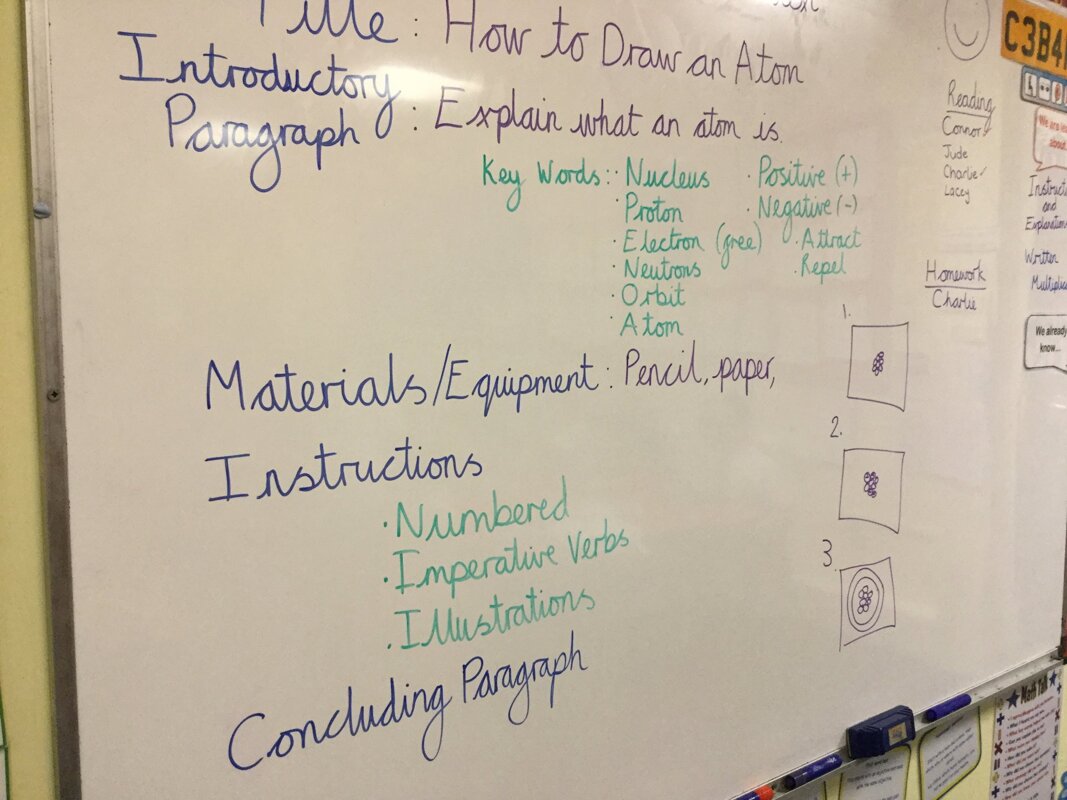 Title : How to Draw an Atom
Introductory
Paragraph : Explain what an atom is.
Key Words: · Nucleus · Positive (+)
· Proton · Negative (-)
· Electron (free) · Attract
· Neutrons · Repel
· Orbit
· Atom
Materials/Equipment : Pencil, paper,
Instructions
· Numbered
· Imperative Verbs
· Illustrations
Concluding Paragraph
1.
2.
3.
Reading
Connor
Jude
Charlie
Lacey
Homework
Charlie
C3B4
We are
about
and
Written
We already
know...
Math Talk